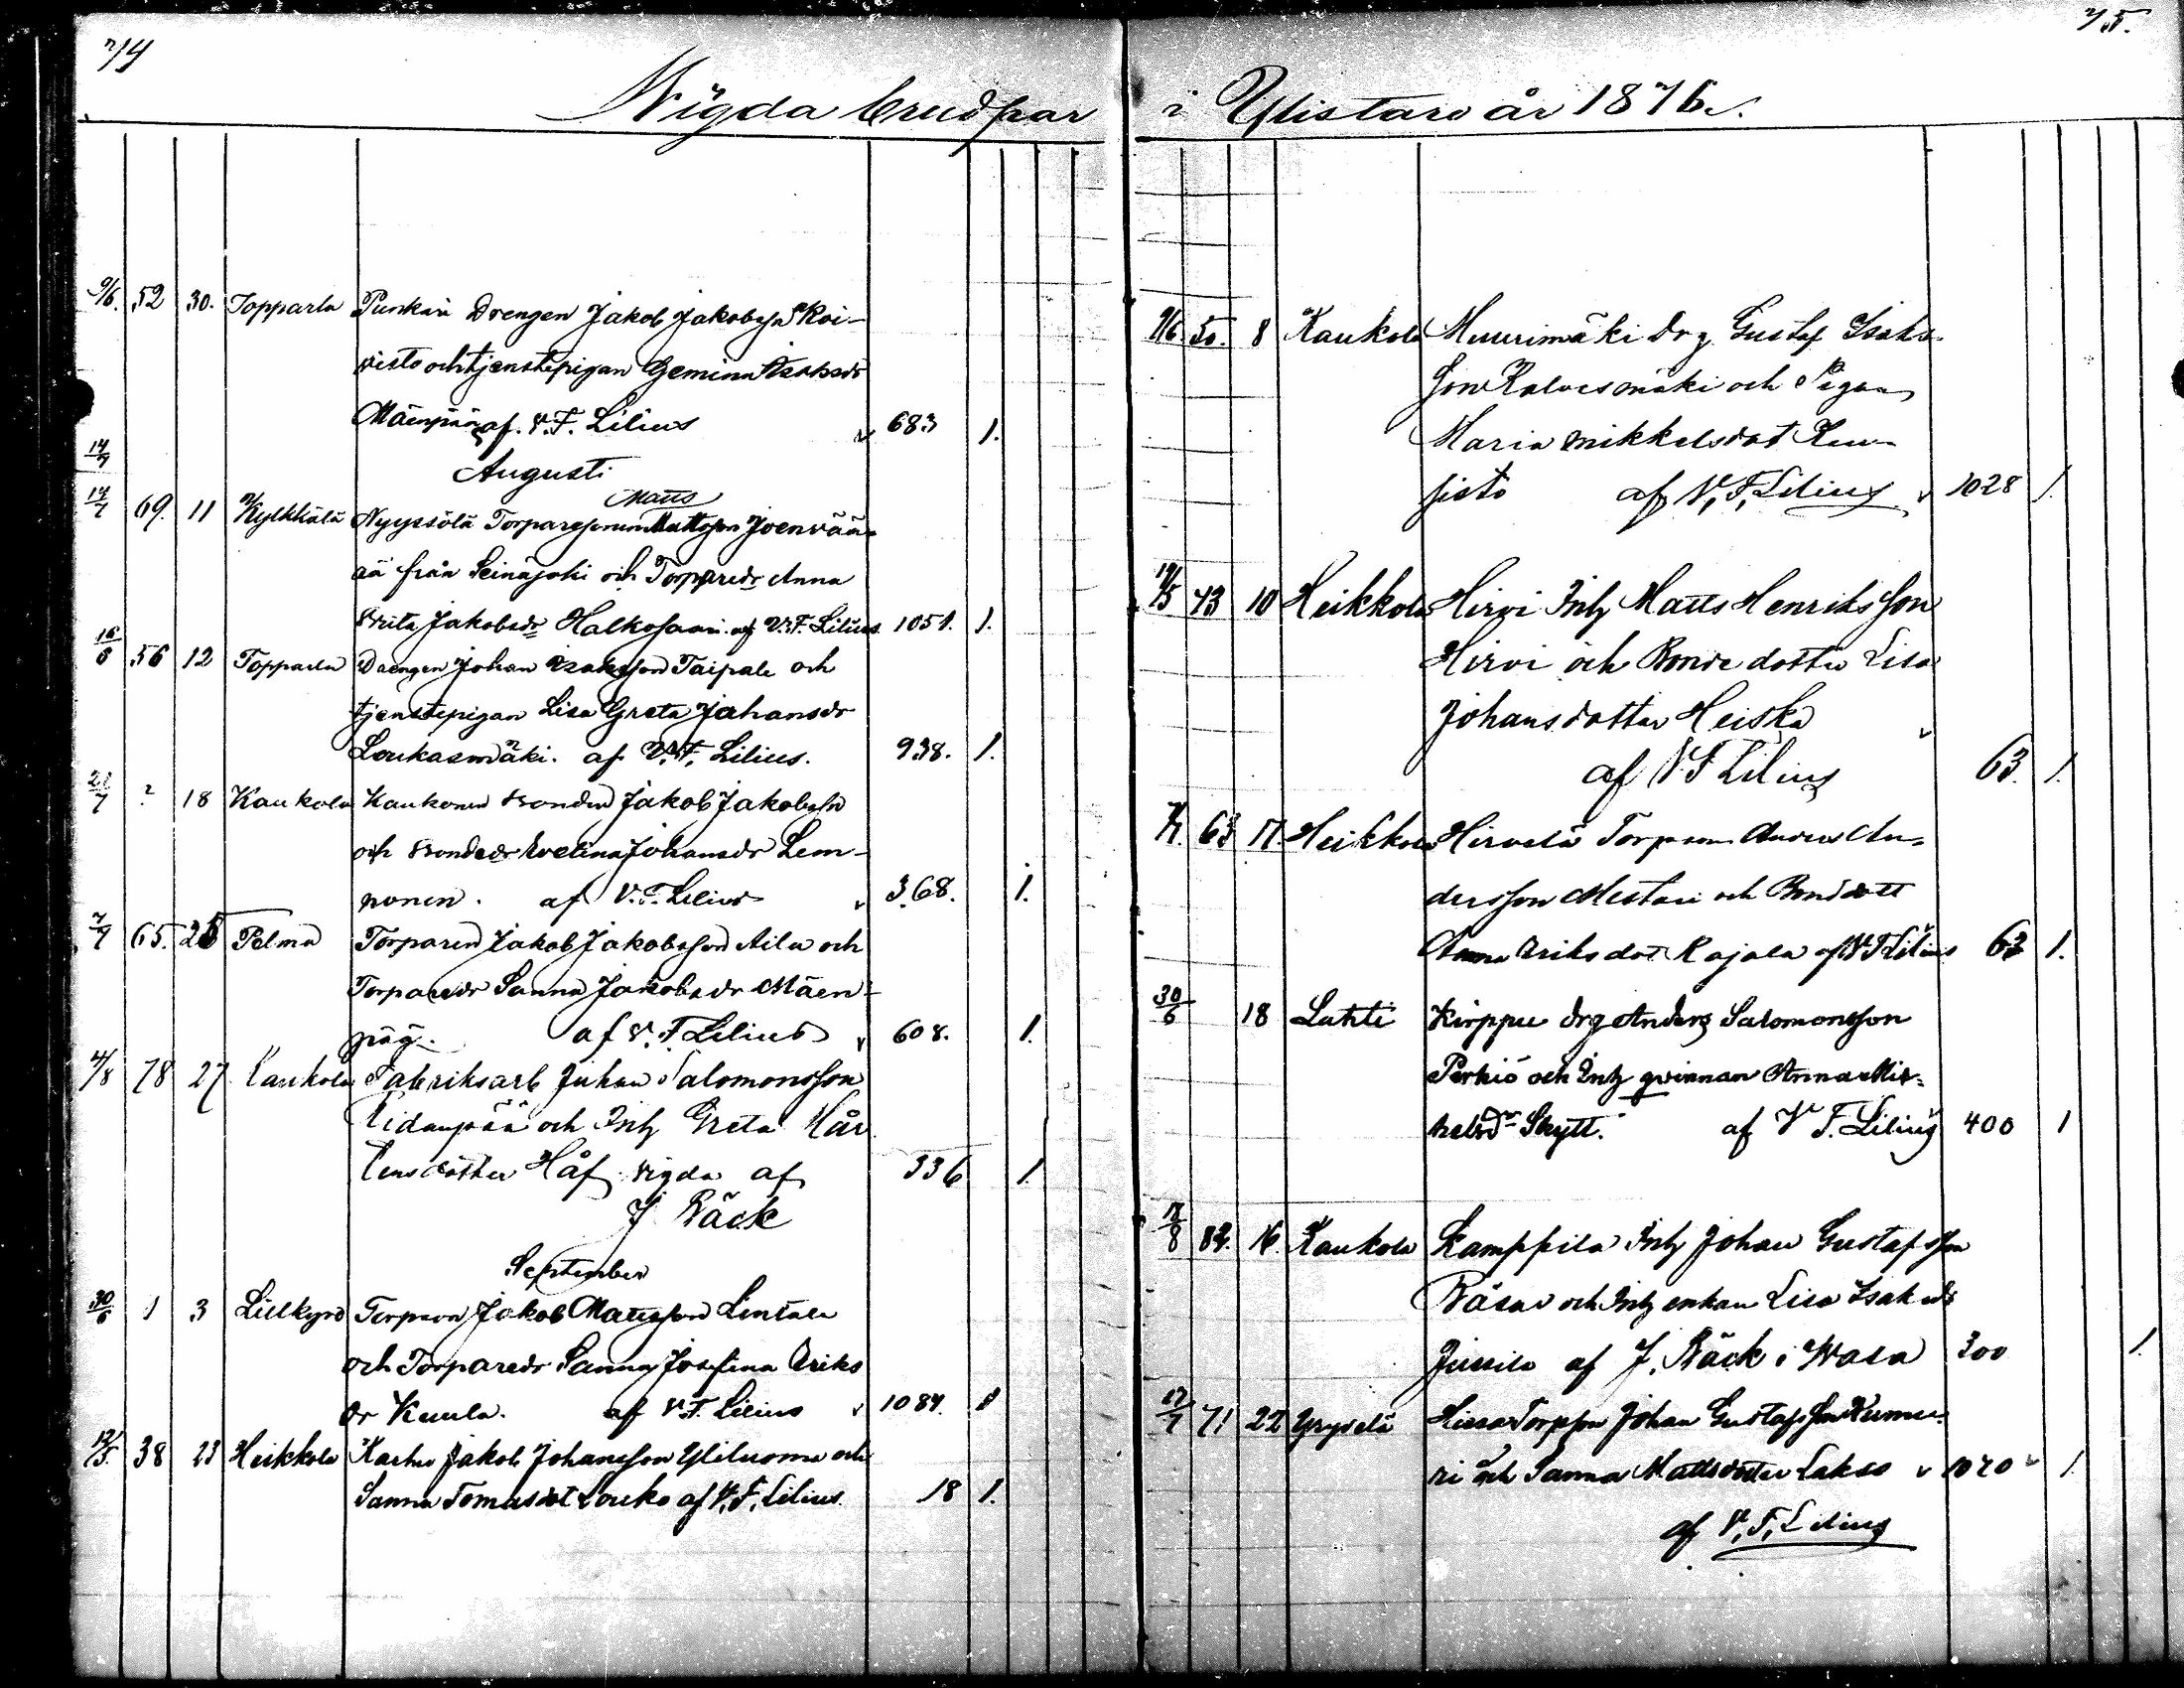 74
Wigda brudpar
9/6. 52 30. Topparla Punkari Drengen Jakob Jakobsson Koi-
visto och tjenstepigan Gemina Isaksdr
Mäenpää af. V. F. Lilius 683 1.
14/7
Augusti
Matts
14/7 69. 11 Kylkkälä Nyyssölä Torparesonen Mattsson Joenvää-
rä från Seinäjoki och Torparedr Anna
Brita Jakobsdr Halkosaari af V. F. Lilius 1051. 1.
16/6 56 12 Topparla Drengen Johan Isaksson Taipale och
tjenstepigan Lisa Greta Johansdr
Loukasmäki. af V. F. Lilius. 938. 1.
21/7 ? 18 Kaukola Kaukonen Bonden Jakob Jakobsson
och Bondedr Evelina Johansdr Lem-
nonen. af V. F. Lilius 368. 1.
7/7 65. 25 Pelma Torparen Jakob Jakobsson Aila och
Torparedr Sanna Jakobsdr Mäen-
pää. af V. F. Lilius 608. 1.
4/8 78 27 Kaukola Fabriksarb Juhan Salomonsson
och Inh Greta Mår
tensdotter Håf vigda af 336 1.
J Bäck
September
30/6 1 3 Lillkyro Torpson Jakob Mattsson Lintala
och Torparedr Sanna Josefina Eriks
dr Kuula. af V. F. Lilius 1084. 1
12/5. 38 23 Heikkola Karhu Jakob Johansson Yliluoma och
Sanna Tomasdot Louko af V. F. Lilius. 18 1.
75.
i Ylistaro år 1876.
9/6. 50. 8 Kaukola Muurimäki Drg Gustaf Isaks-
son Kalvesmäki och Pigan
Maria Mikkelsdot Kuu-
sisto af V. F. Lilius 1028 1.
19/5 43 10 Heikkola Hirvi Inh Matts Henriksson
Hirvi och Bonde dotter Lisa
Johansdotter Heiska
af V. F Lilius 63. 1.
7/7. 63 17. Heikkola Hirvelä Torpson Anders An-
dersson Mestari och Bondedott
Anna Eriksdot Rajala af V F Lilius 63 1.
30/6 18 Lahti Kirppu drg Anders Salomonsson
Perkiö och Inh qvinnan Anna Mic-
helsdr Skytt. af V F. Lilius 400 1
18/8 82. 16. Kaukola Kamppila Inh Johan Gustafsson
Räsar och Inh enkan Lisa Isaksdr
Jussila af J. Bäck i Wasa 300 1.
12/7 71 22 Yrysilä Hissa Torpson Johan Gustafsson Rumu-
ri och Sanna Mattsdotter Lakso 1020 1.
af V. F. Lilius